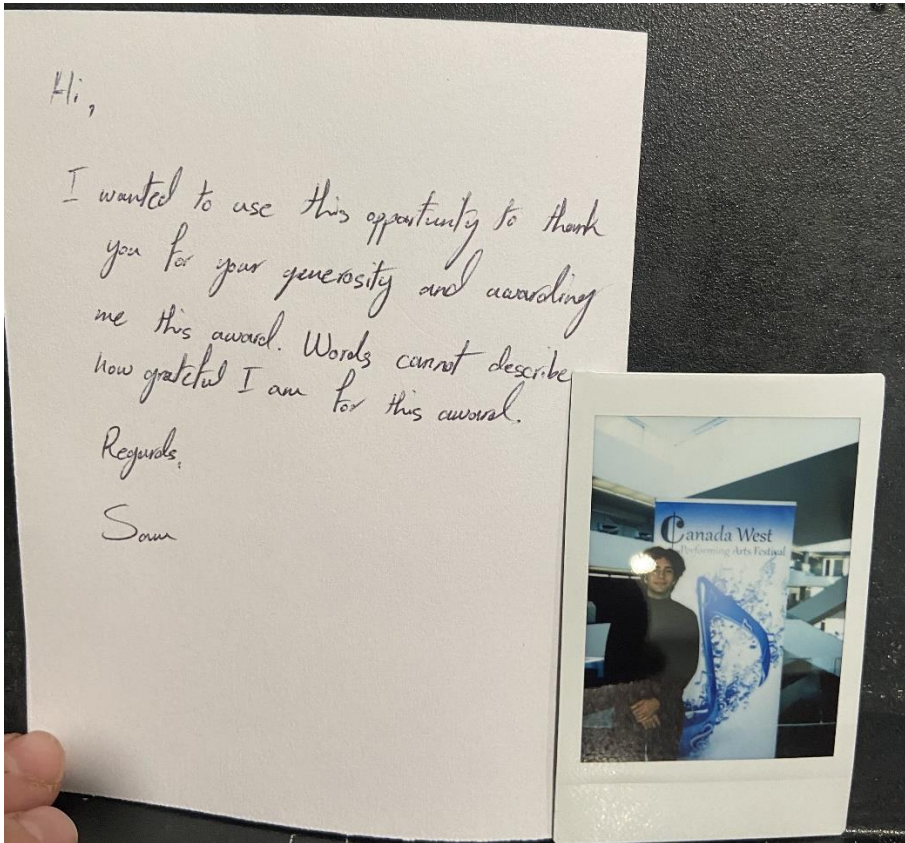 Hi,
I wanted to use this opportunity to thank
you for your generosity and awarding
me this award. Words cannot describe
how grateful I am for this award.
Regards,
Sam
Canada West
Performing Arts Festival